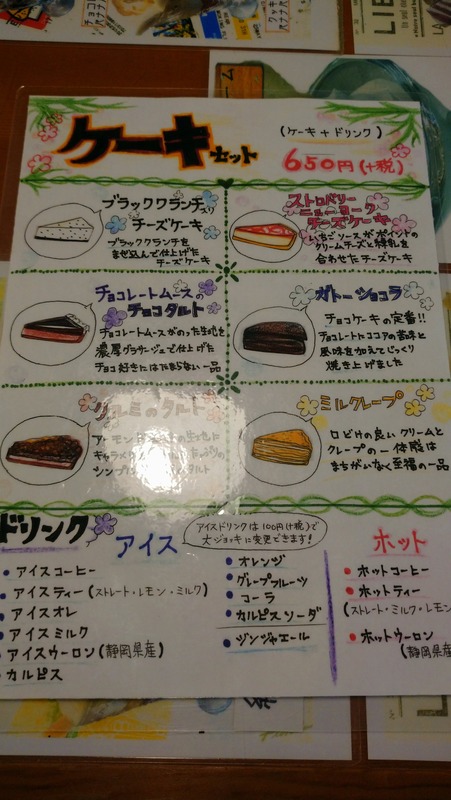 ケーキセット
(ケーキ+ドリンク)
650円(+税)
ブラッククランチ入り
チーズケーキ
ブラッククランチを
まぜ込んで仕上げた
チーズケーキ
ストロベリー
ニューヨーク
チーズケーキ
いちごソースがポイントの
クリームチーズと練乳を
合わせたチーズケーキ
チョコレートムースの
チョコタルト
チョコレートムースがのった生地を
濃厚グラサージュで仕上げた
チョコ好きにはたまらない一品
ガトーショコラ
チョコケーキの定番!!
チョコレートにココアの苦味と
風味を加えてじっくり
焼き上げました
クルミのタルト
アーモンド
生地に
キャラメル
シンプル
タルト
ミルクレープ
口どけの良いクリームと
クレープの一体感は
まちがいなく至福の一品
ドリンク
アイス
アイスドリンクは100円(+税)で
大ジョッキに変更できます!
アイスコーヒー
アイスティー(ストレート・レモン・ミルク)
アイスオレ
アイスミルク
アイスウーロン(静岡県産)
カルピス
オレンジ
グレープフルーツ
コーラ
カルピスソーダ
ジンジャエール
ホット
ホットコーヒー
ホットティー
(ストレート・ミルク・レモン
ホットウーロン
(静岡県産